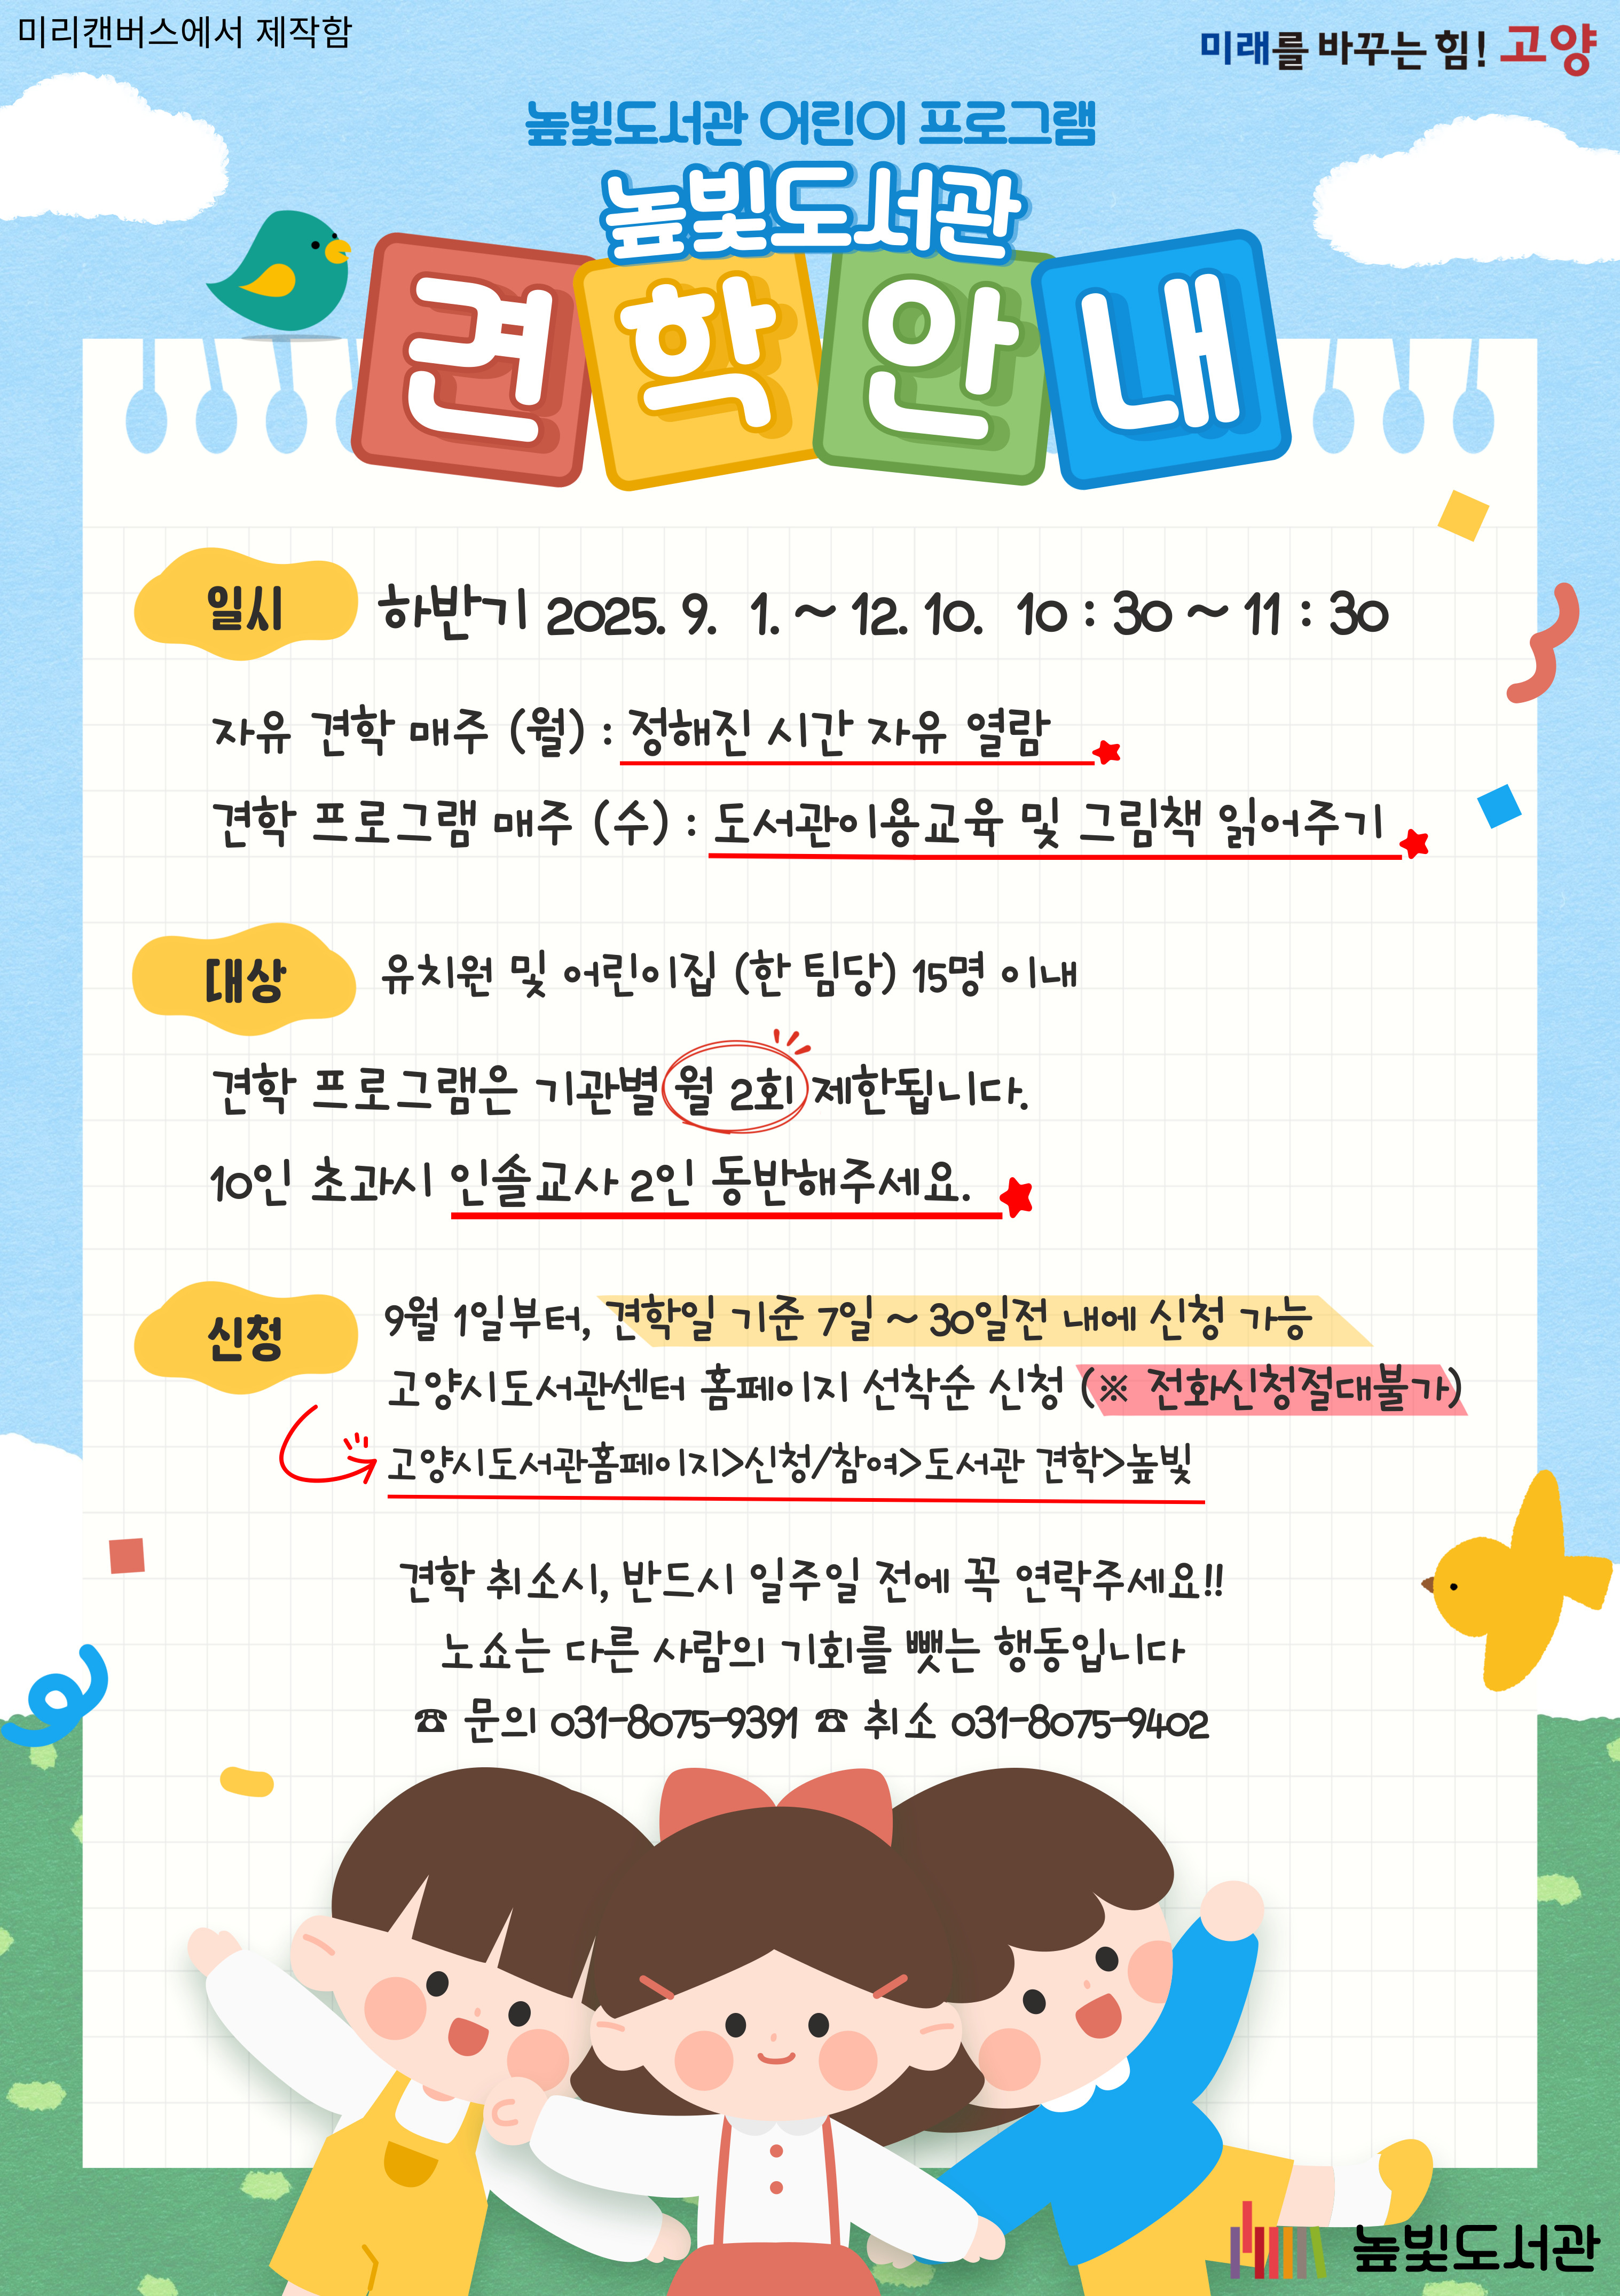 미리캔버스에서 제작함
미래를 바꾸는 힘! 고양
높빛도서관 어린이 프로그램
높빛도서관
견학안내
일시 하반기 2025. 9. 1. ~ 12. 10. 10 : 30 ~ 11 : 30
자유 견학 매주 (월) : 정해진 시간 자유 열람
견학 프로그램 매주 (수) : 도서관이용교육 및 그림책 읽어주기
대상 유치원 및 어린이집 (한 팀당) 15명 이내
견학 프로그램은 기관별 월 2회 제한됩니다.
10인 초과시 인솔교사 2인 동반해주세요.
신청 9월 1일부터, 견학일 기준 7일 ~ 30일전 내에 신청 가능
고양시도서관센터 홈페이지 선착순 신청 (※ 전화신청절대불가)
고양시도서관홈페이지>신청/참여>도서관 견학>높빛
견학 취소시, 반드시 일주일 전에 꼭 연락주세요!!
노쇼는 다른 사람의 기회를 뺏는 행동입니다
☎ 문의 031-8075-9391 ☎ 취소 031-8075-9402
높빛도서관